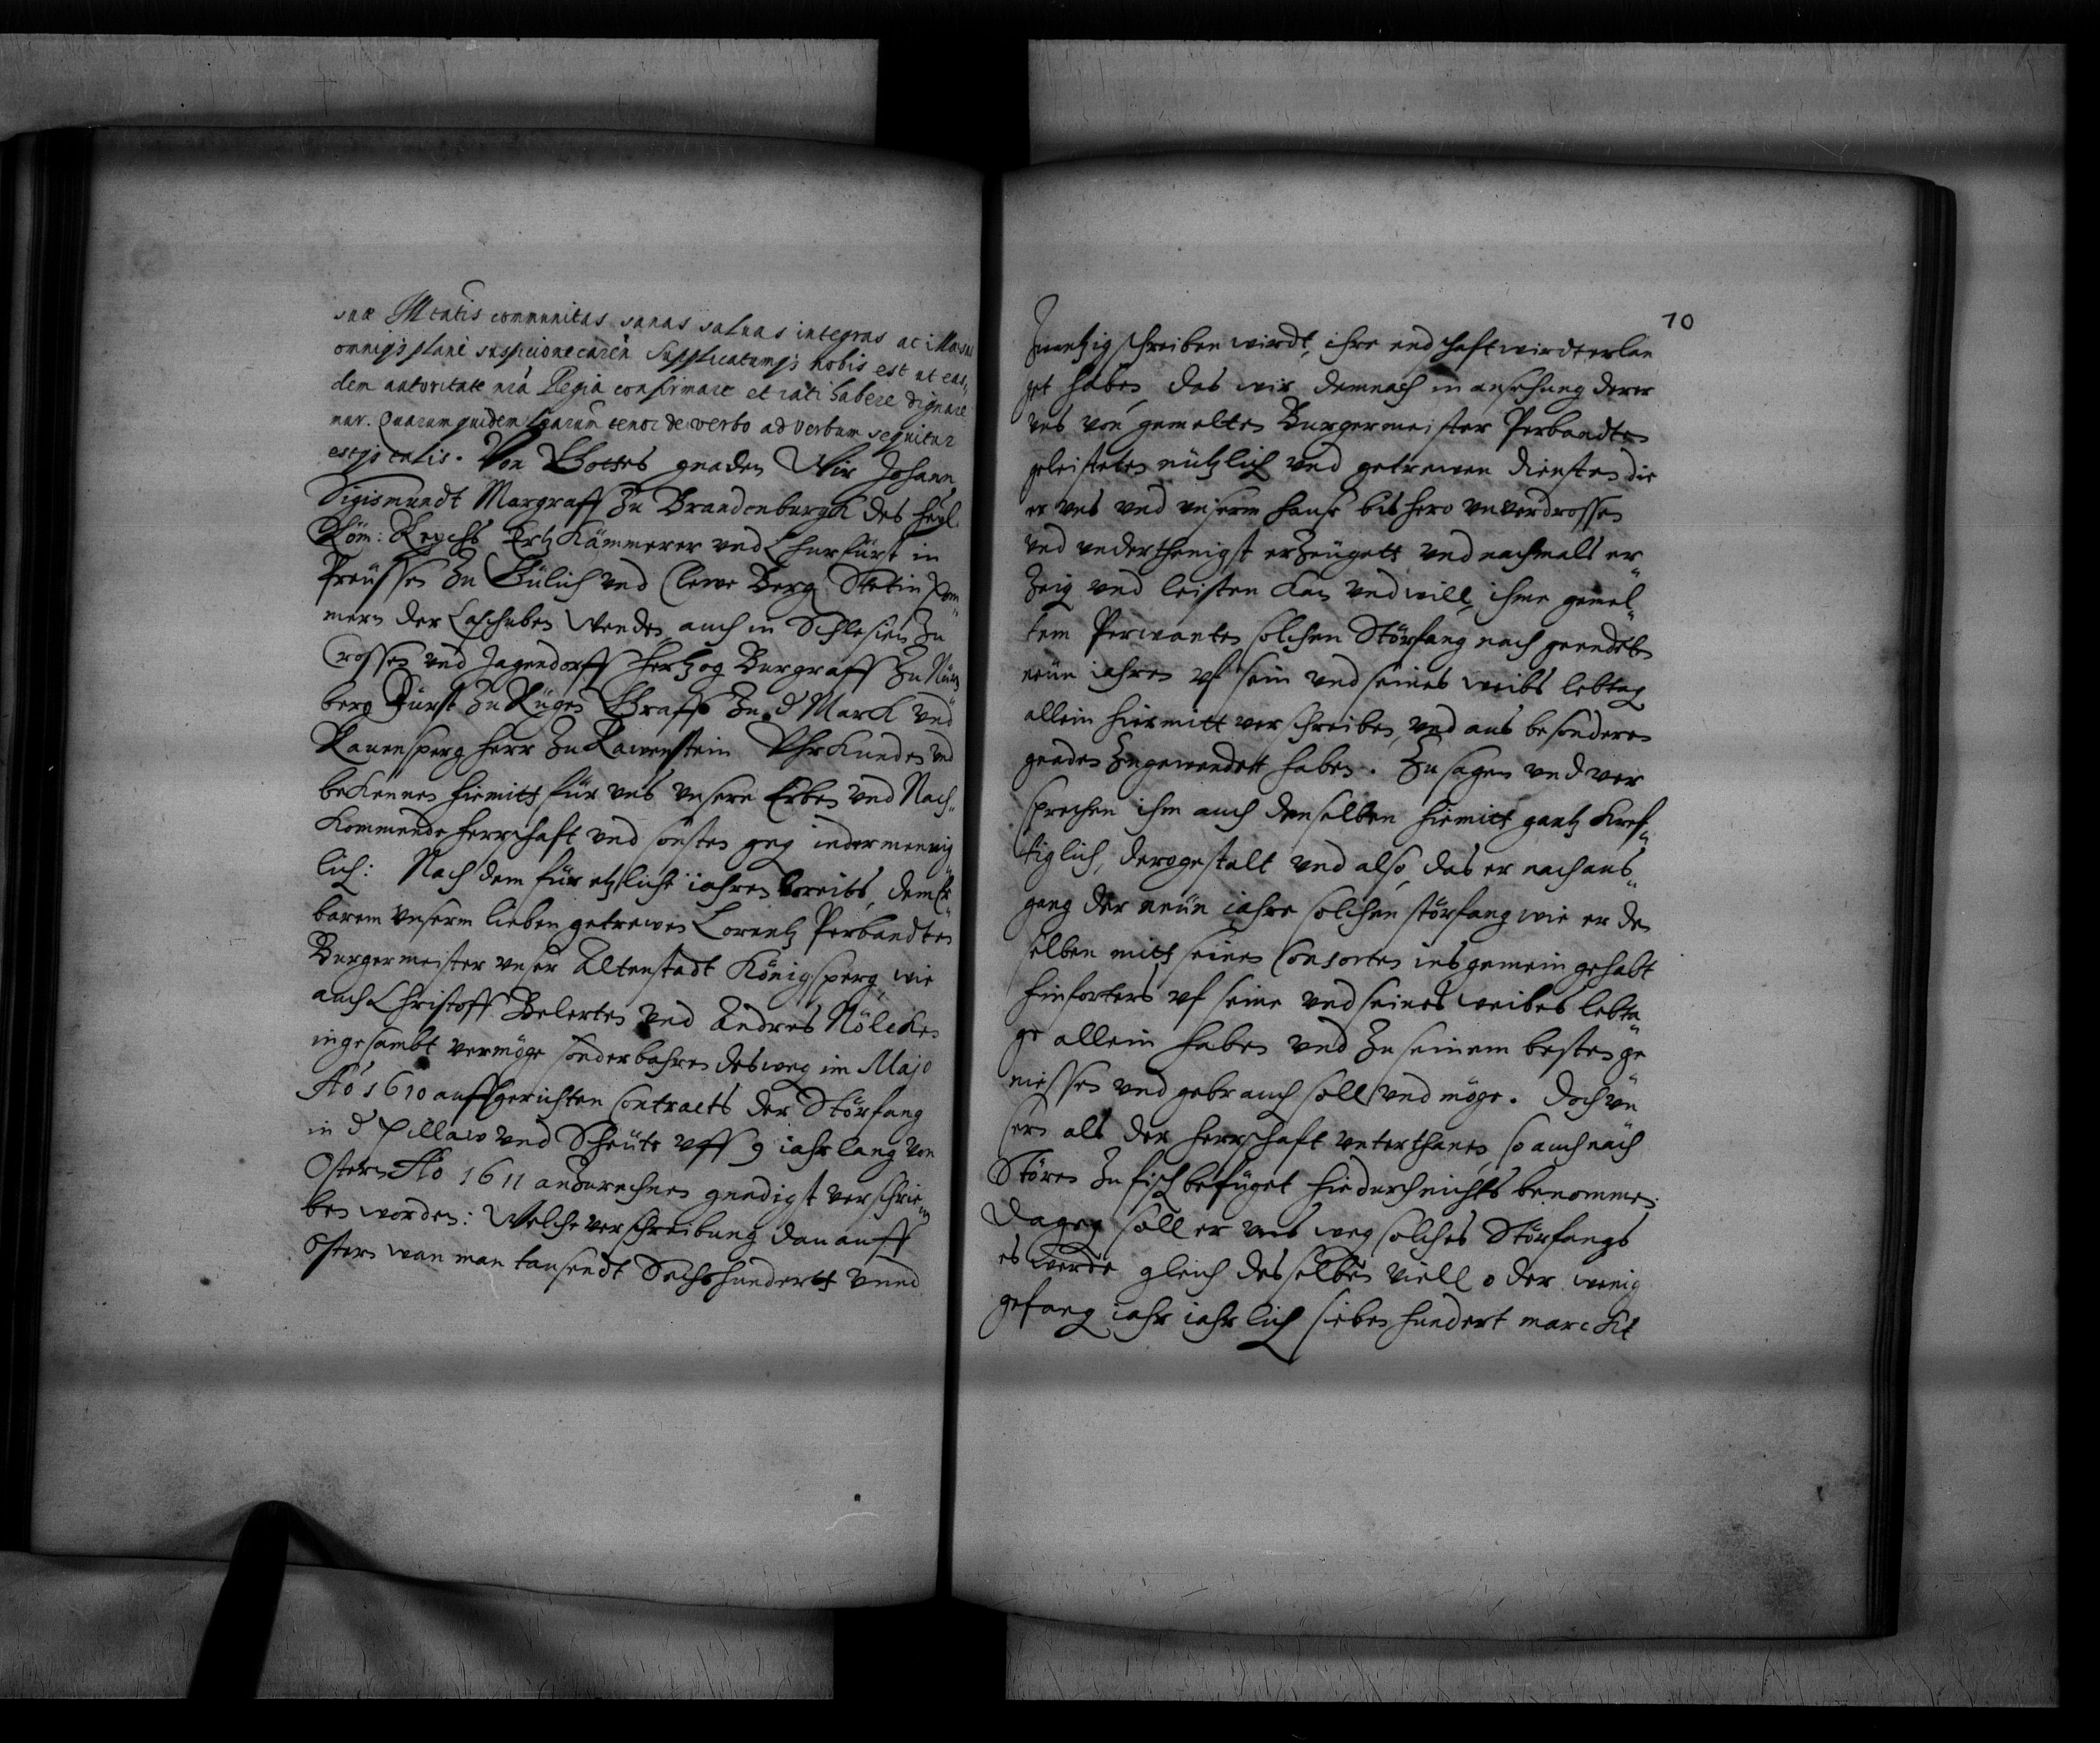 suæ Mtatis communitas sanas saluas integras ac illæsas
omniq3 plane suspicione caren Supplicatumq3 nobis est ut eas„
dem autoritate nra Regia confirmare et rati habere dignare
mur. Quarum quidem lrarum tenor de verbo ad verbum sequitur
estq3 talis. Von Gottes gnaden Wir Johann
Sigismundt Margraff Zu Brandenburgk des heyl.
Röm: Reychs Ertz Kämmerer vnd Churfürst in
Preüssen Zu Gülich vnd Cleve Berg Stetin Pom„
mern der Caschuben Wenden auch in Schlesien Zu
Crossen vnd Jagendorff hertzog Burgraff Zu Nürn„
berg Fürst Zu Rügen Graff Zu d Marck vnd
Rauensperg herr Zu Rauenstein Vhrkunden vnd
bekennen hiemitt für vns vnsere Erben vnd Nach„
kommende herrschaft vnd sonsten geg iedermennig
lich: Nach dem für etzliche iahren bereits, dem Er„
barem vnserm lieben getrewen Lorentz Perbandten
Burgermeister vnser Altenstadt Königsperg, wie
auch Christoff Belerten vnd Andres Nölcken
ingesambt vermöge sonderbahren desweg im Majo
Ao 1610 auffgerichten Contracts der Störfang
in d Pillaw vnd Scheüte vff 9 iahr lang von
Ostern Ao 1611 anzurechnen gnedigst verschrie„
ben worden: Welche verschreibung dan auff
Ostern wan man tausendt Sechshundertt vnnd
70
Zwentzig schreiben wirdt, ihre endschaft wirdt erlan
get haben, das wir demnach in ansehung derer
vns von gemelten Burgermeister Perbandten
geleisteten nützlich vnd getrewen diensten die
er vns vnd vnserm hause bishero vnverdrossen
vnd vnderthenigst erzeügett vnd nachmals er„
Zeig vnd leisten kan vnd will, ihme gemel„
tem Perwanten solchen Störfang nach geendeten
neün iahren vf sein vnd seines weibs lebtag
allein hiermitt verschreiben, vnd aus besonderen
gnaden Zugewendett haben. Zusagen vnd ver
sprechen ihm auch denselben hiemitt gantz kref„
tiglich, derogestalt vnd also, das er nach aus„
gang der neün iahre solchen störfang wie er den
selben mitt seinen Consorten insgemein gehabt
hinforters vf seine vnd seines weibes lebta„
ge allein haben vnd Zu seinem besten ge„
niessen vnd gebrauch soll vnd möge. Doch vn„
sern als der herrschaft vnterthanen, so auch nach
Stören Zu fisch befüget hiedurch nichts benommen
Dageg soll er vns weg solches Störfangs
es werde gleich desselben viell oder wenig
gefang iahr iahrlich sieben hundert marckt